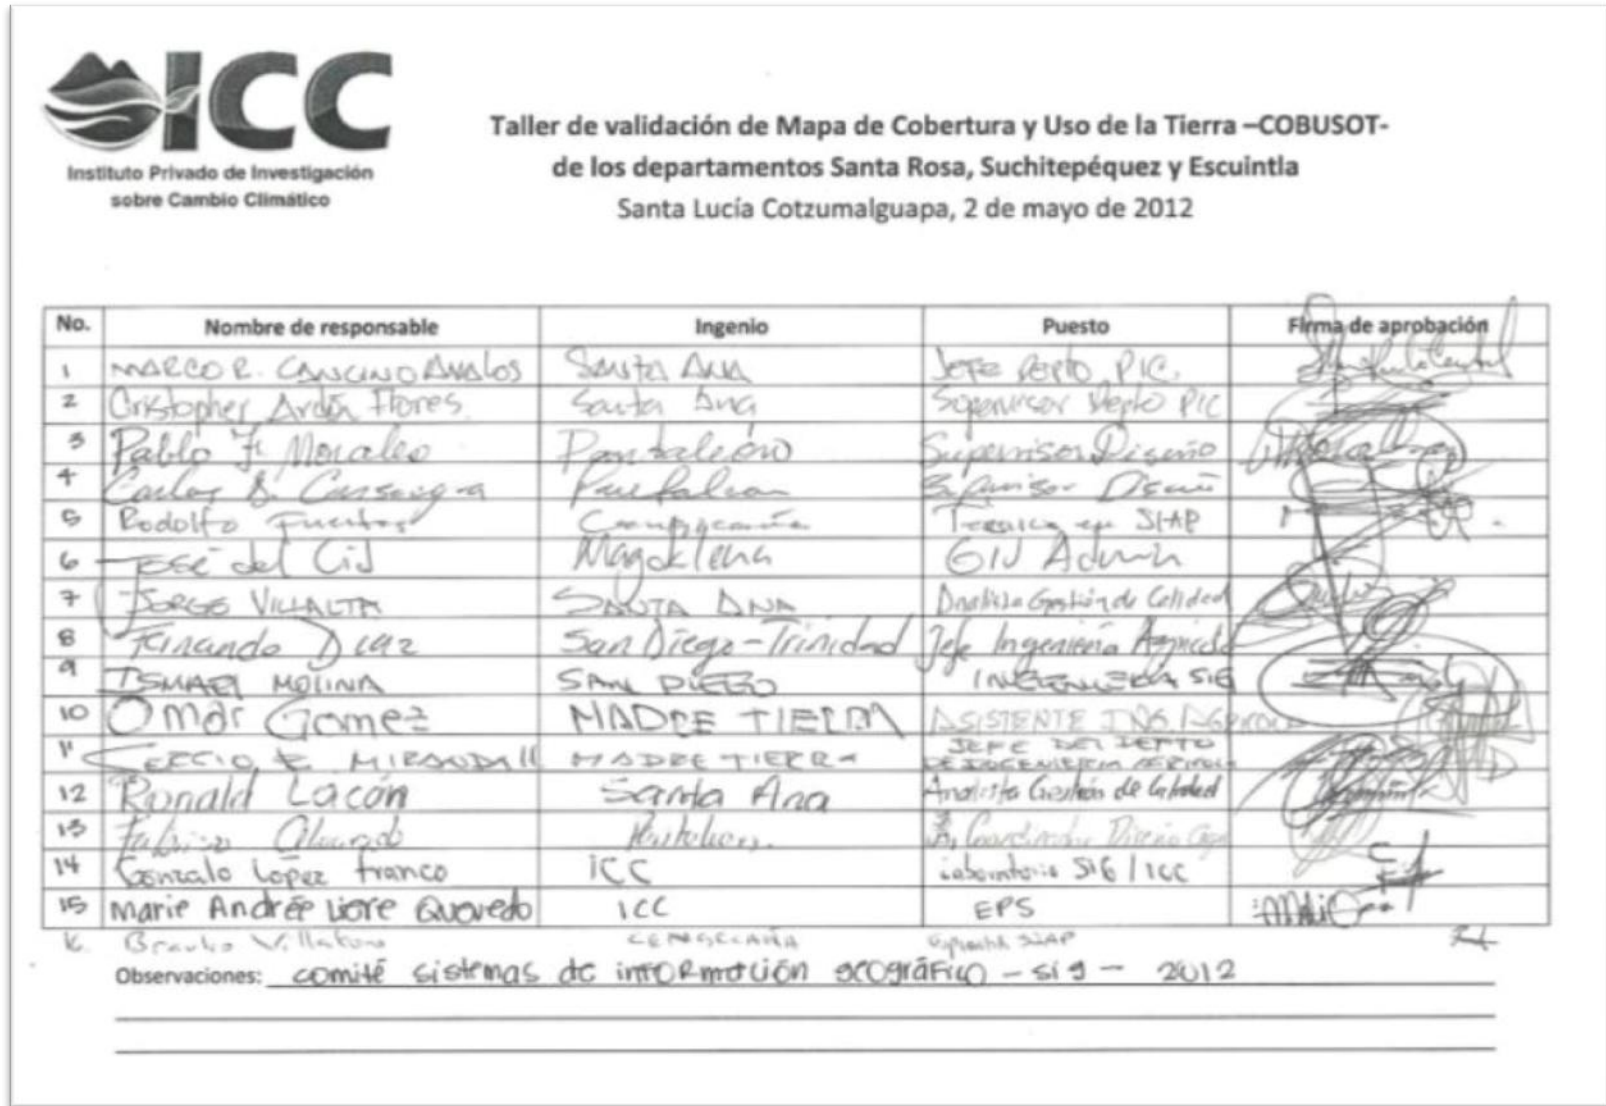 ICC
Instituto Privado de Investigación
sobre Cambio Climático
Taller de validación de Mapa de Cobertura y Uso de la Tierra –COBUSOT-
de los departamentos Santa Rosa, Suchitepéquez y Escuintla
Santa Lucía Cotzumalguapa, 2 de mayo de 2012
No. Nombre de responsable Ingenio Puesto Firma de aprobación
1 MARCO R. CANCINO AVALOS SANTA ANA JEFE DEPTO PIC.
2 Cristopher Ardón Flores Santa Ana Supervisor Depto PIC
3 Pablo F. Morales Pantaleón Supervisor Diseño
4 Carlos Pantaleon Supervisor Diseño
5 Rodolfo Fuentes Técnico en SIAP
6 José del Cid Magdalena Admin
7 JORGE VILLALTA SANTA ANA Analista Gestión de Calidad
8 Fernando Diaz San Diego-Trinidad Jefe Ingeniería Agrícola
9 ISMAEL MOLINA SAN DIEGO INGENIERIA SIG
10 Omar Gomez MADRE TIERRA ASISTENTE ING. AGRICOLA
11 SERGIO MADRE TIERRA JEFE DEL DEPTO
DE INGENIERIA AGRICOLA
12 Ronald Lacán Santa Ana Analista Gestión de Calidad
13 Pantaleon Coordinador Diseño
14 Gonzalo López Franco ICC Laboratorio SIG / ICC
15 Marie Andrée Liere Quevedo ICC EPS
CENGICAÑA SIAP
Observaciones: comité sistemas de información geográfico - sig - 2012